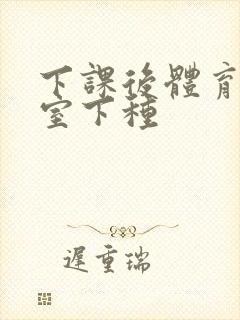 下課後體育
室下種
遲重瑞